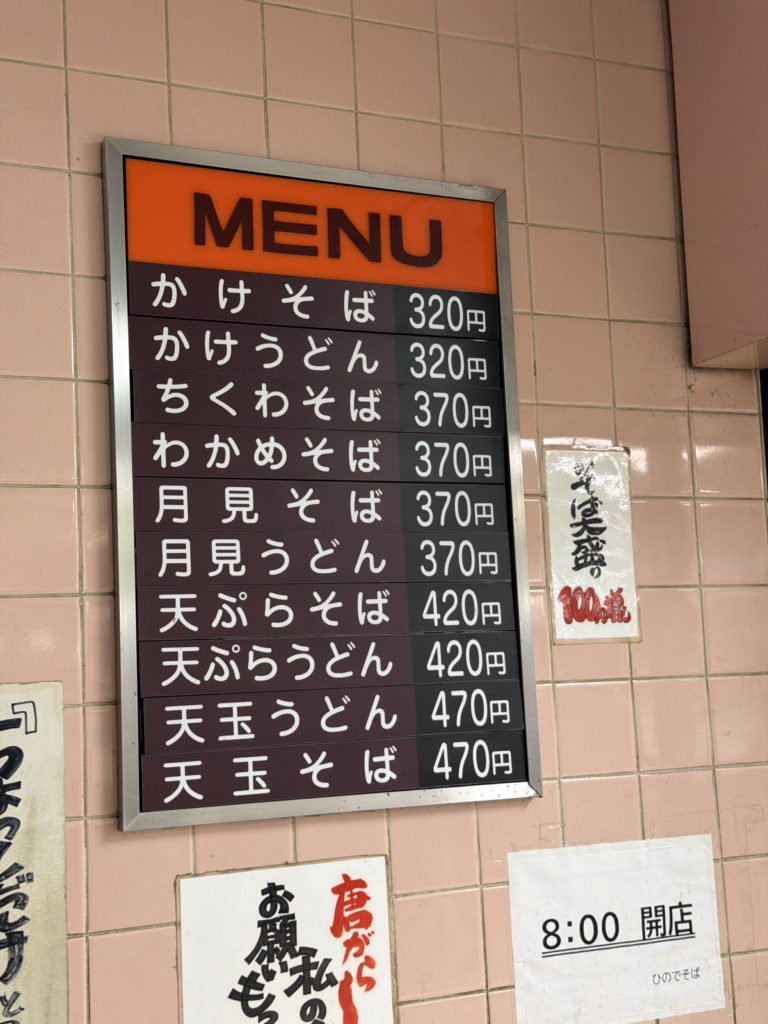 MENU
かけそば 320円
かけうどん 320円
ちくわそば 370円
わかめそば 370円
月見そば 370円
月見うどん 370円
天ぷらそば 420円
天ぷらうどん 420円
天玉うどん 470円
天玉そば 470円
そば大盛り
100円増し
唐がらし
私の
お願い
8:00 開店
ひのでそば